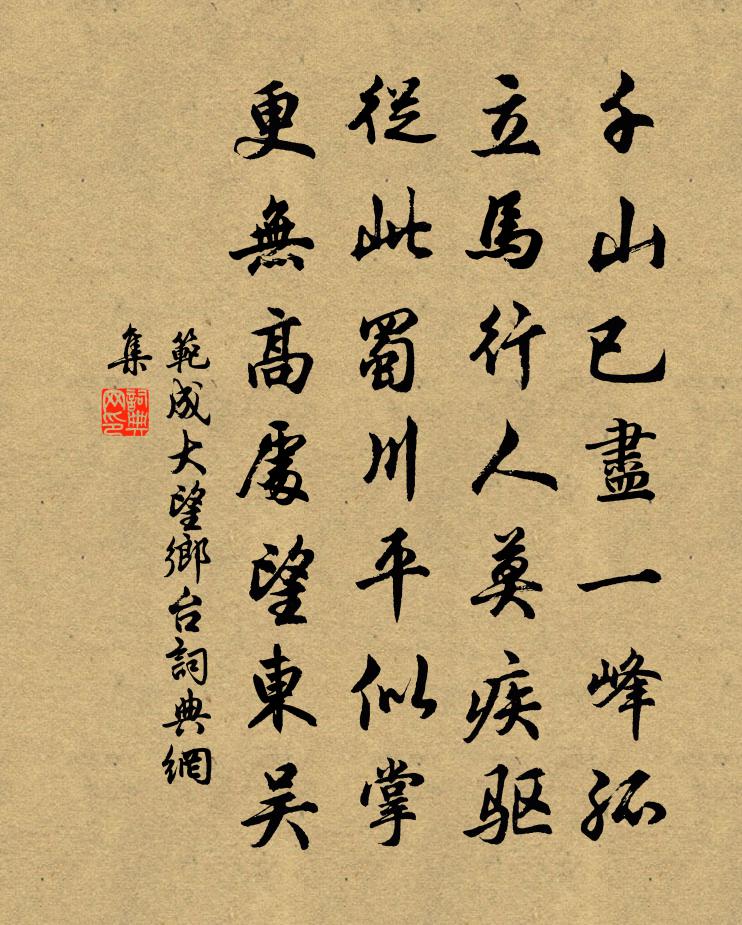 千山已盡一峰孤
立馬行人莫疾驱
從此蜀川平似掌
更無高處望東吴
範成大望鄉台詞典網
集
詞典
网印